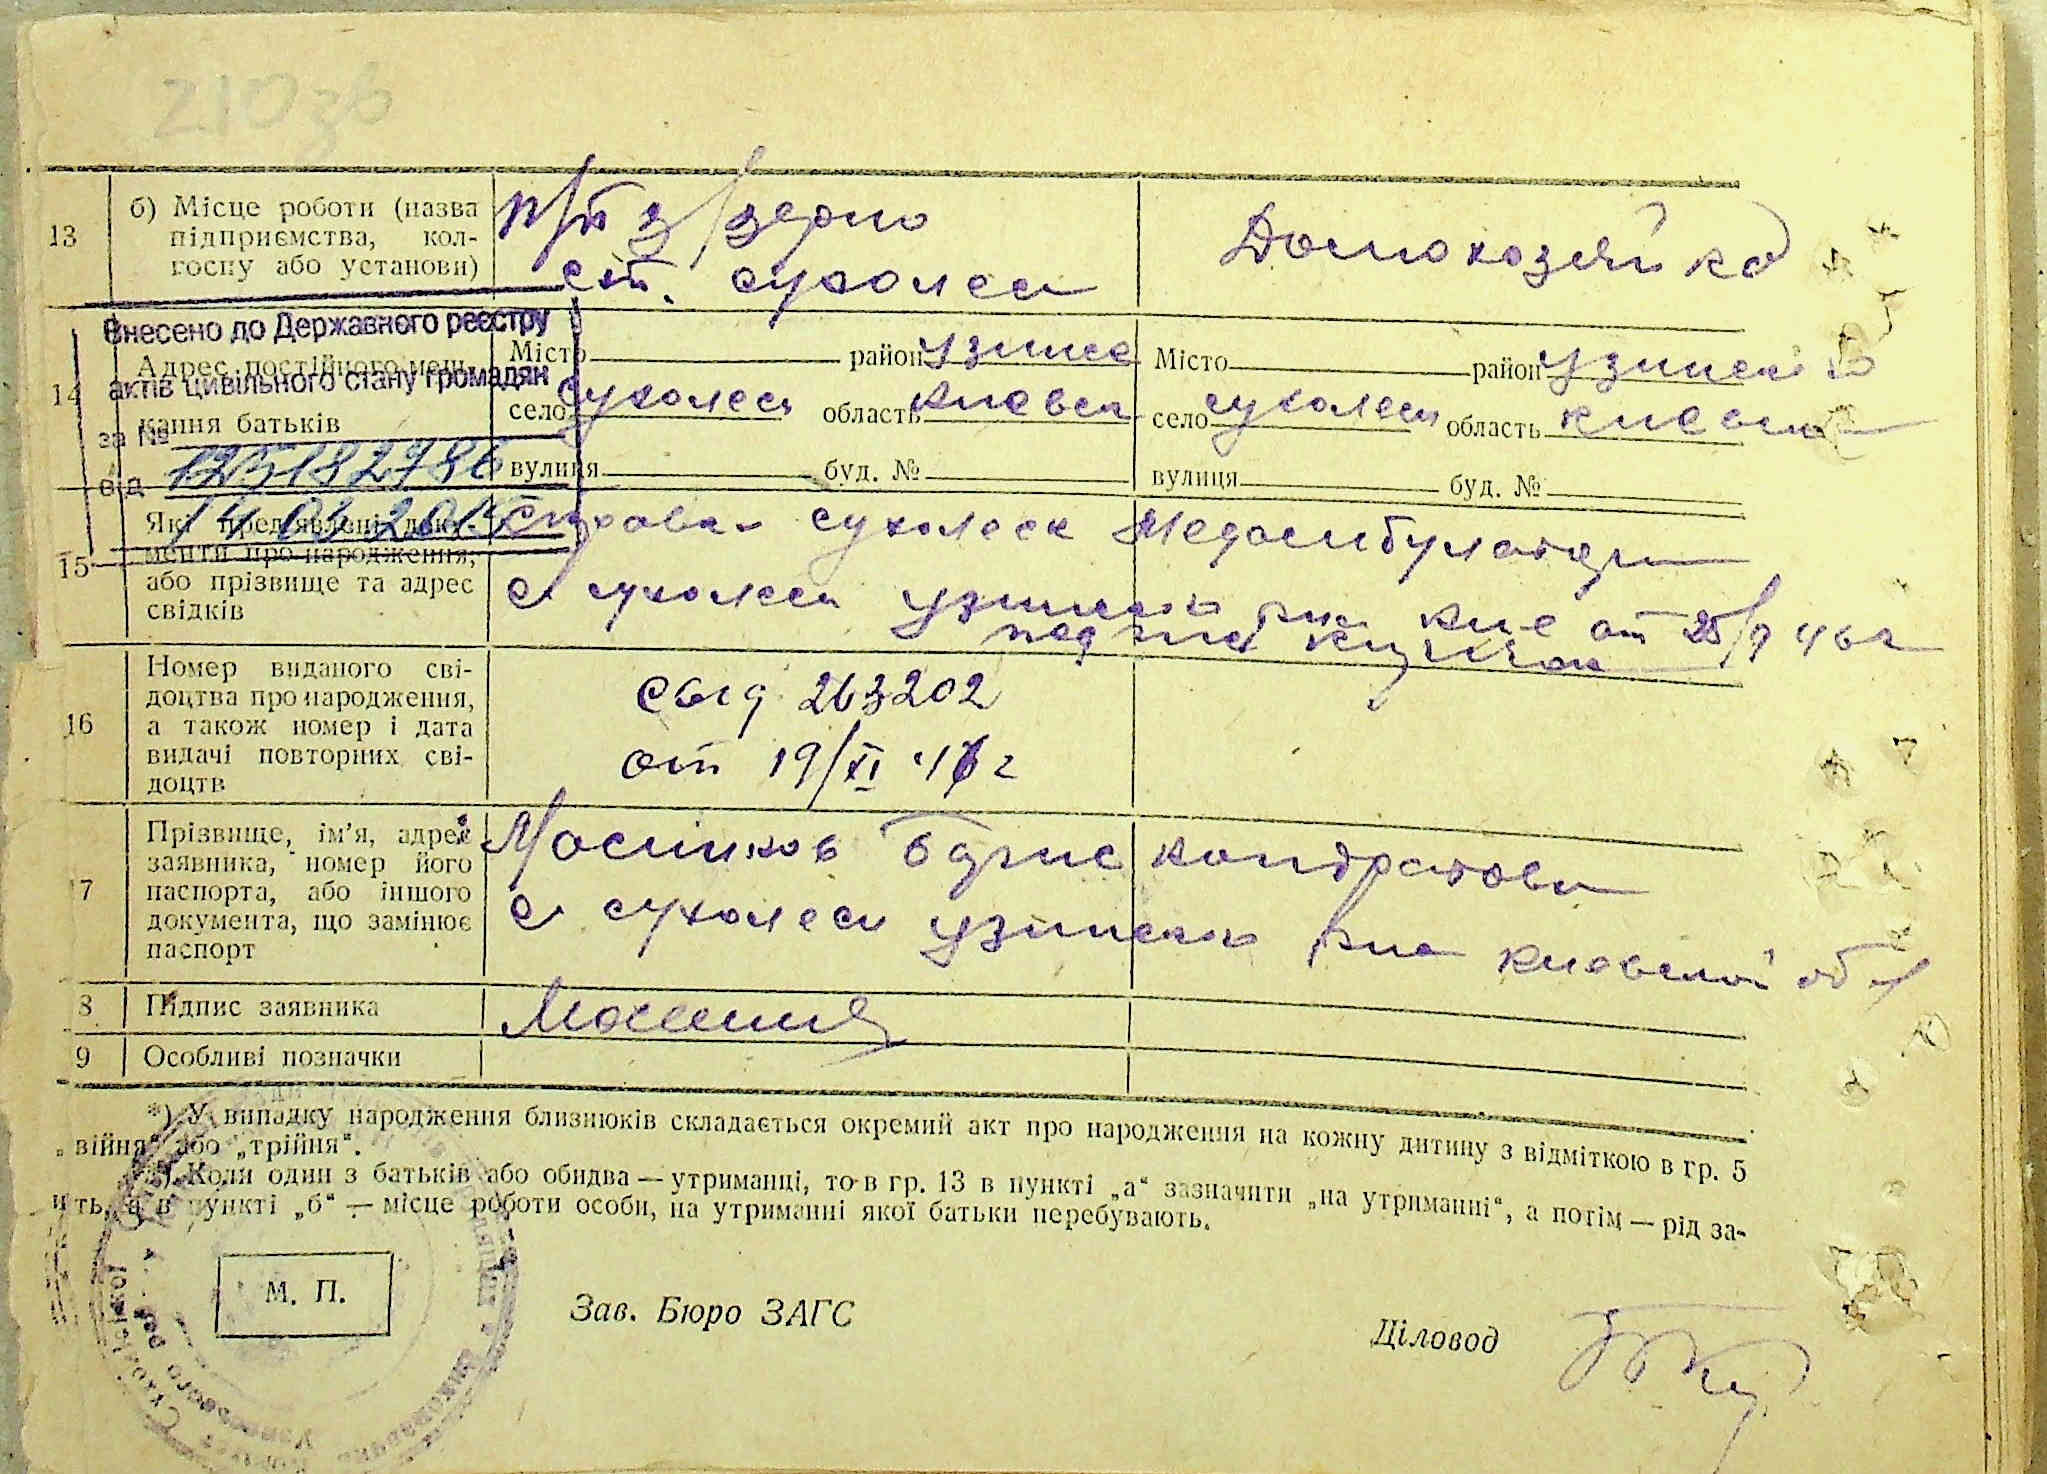 210 зв
13
б) Місце роботи (назва
підприємства, кол-
госпу або установи)
п/п з/зерно
ст. сухолеси
Домохозяйка
Внесено до Державного реєстру
актів цивільного стану громадян
за № 125182786
від 14 03 201
14
Адрес постійного меш-
кання батьків
Місто район узинс
село сухолеси область киевск
вулиця буд. №
Місто район узинский
село сухолеси область киевск
вулиця буд. №
15
Які пред'явлені доку-
менти про народження,
або прізвище та адрес
свідків
Справка сухолеск
с сухолеси узинск р-на кие от 25/9 46 г
16
Номер виданого сві-
доцтва про народження,
а також номер і дата
видачі повторних сві-
доцтв
свид 263202
от 19/XI 46 г
7
Прізвище, ім'я, адрес
заявника, номер його
паспорта, або іншого
документа, що замінює
паспорт
кондратови
с сухолеси узинск р-на киевской обл
8
Підпис заявника
9
Особливі позначки
*) У випадку народження близнюків складається окремий акт про народження на кожну дитину з відміткою в гр. 5
„війня“ або „трійня“.
Коли один з батьків або обидва — утриманці, то в гр. 13 в пункті „а“ зазначити „на утриманні“, а потім — рід за-
ть, а в пункті „б“ — місце роботи особи, на утриманні якої батьки перебувають.
М. П.
Зав. Бюро ЗАГС
Діловод